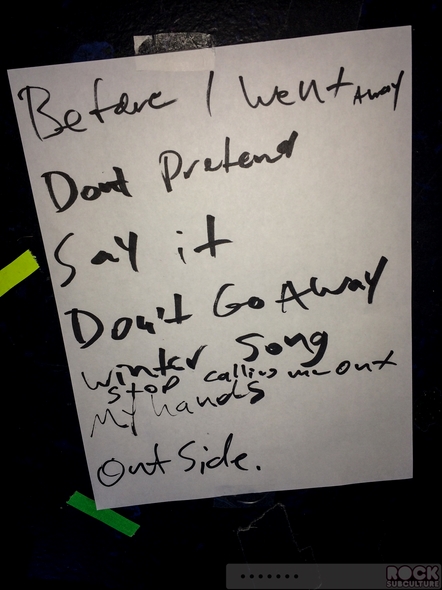 Before I went Away
Dont Pretend
Say it
Don't Go Away
winter Song
stop calling me out
My hands
Outside.
ROCK
SUBCULTURE